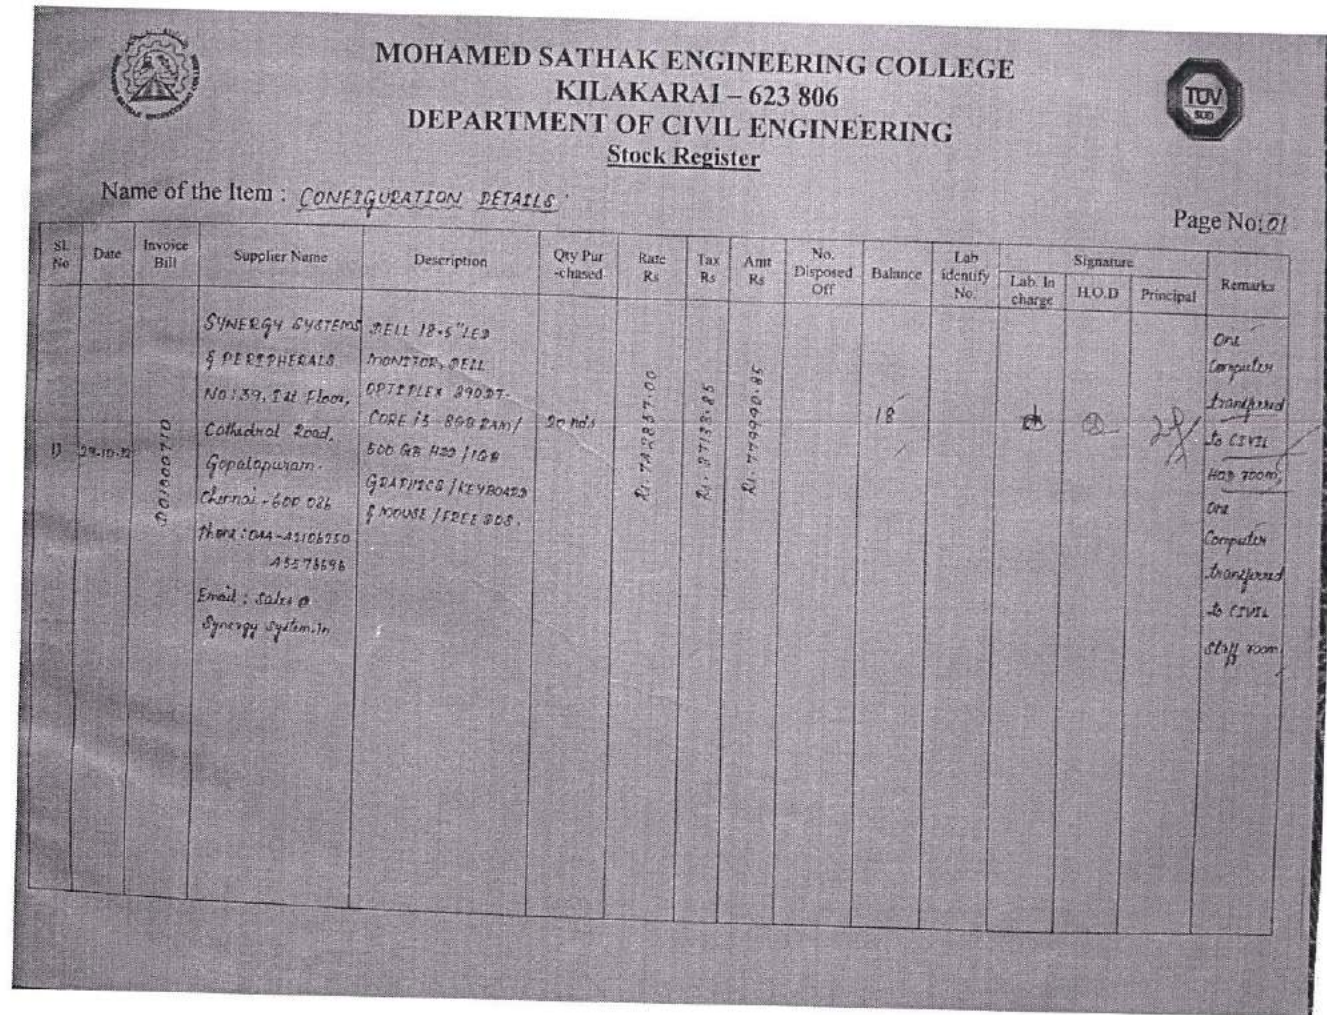 MOHAMED SATHAK ENGINEERING COLLEGE
KILAKARAI – 623 806
DEPARTMENT OF CIVIL ENGINEERING
Stock Register
TUV
SUD
Name of the Item : CONFIGURATION DETAILS
Page No: 01
Sl. No
Date
Invoice Bill
Supplier Name
Description
Qty Pur -chased
Rate Rs
Tax Rs
Amt Rs
No. Disposed Off
Balance
Lab identify No.
Signature
Lab. In charge
H.O.D
Principal
Remarks
SYNERGY SYSTEMS
& PERIPHERALS
No: 39, Ist Floor,
Cathedral Road,
Gopalapuram.
Chennai - 600 086
Phone: 044-42106250
Email : Sales @
Synergy System.In
DELL 18.5" LED
MONITOR, DELL
OPTIPLEX 390 DT-
CORE i3 - 8GB RAM /
500 GB HDD / 1GB
GRAPHICS / KEYBOARD
& MOUSE / FREE DOS.
20 no's
18
One
Computer
transferred
to CIVIL
HOD room,
One
Computer
transferred
to CIVIL
Staff room